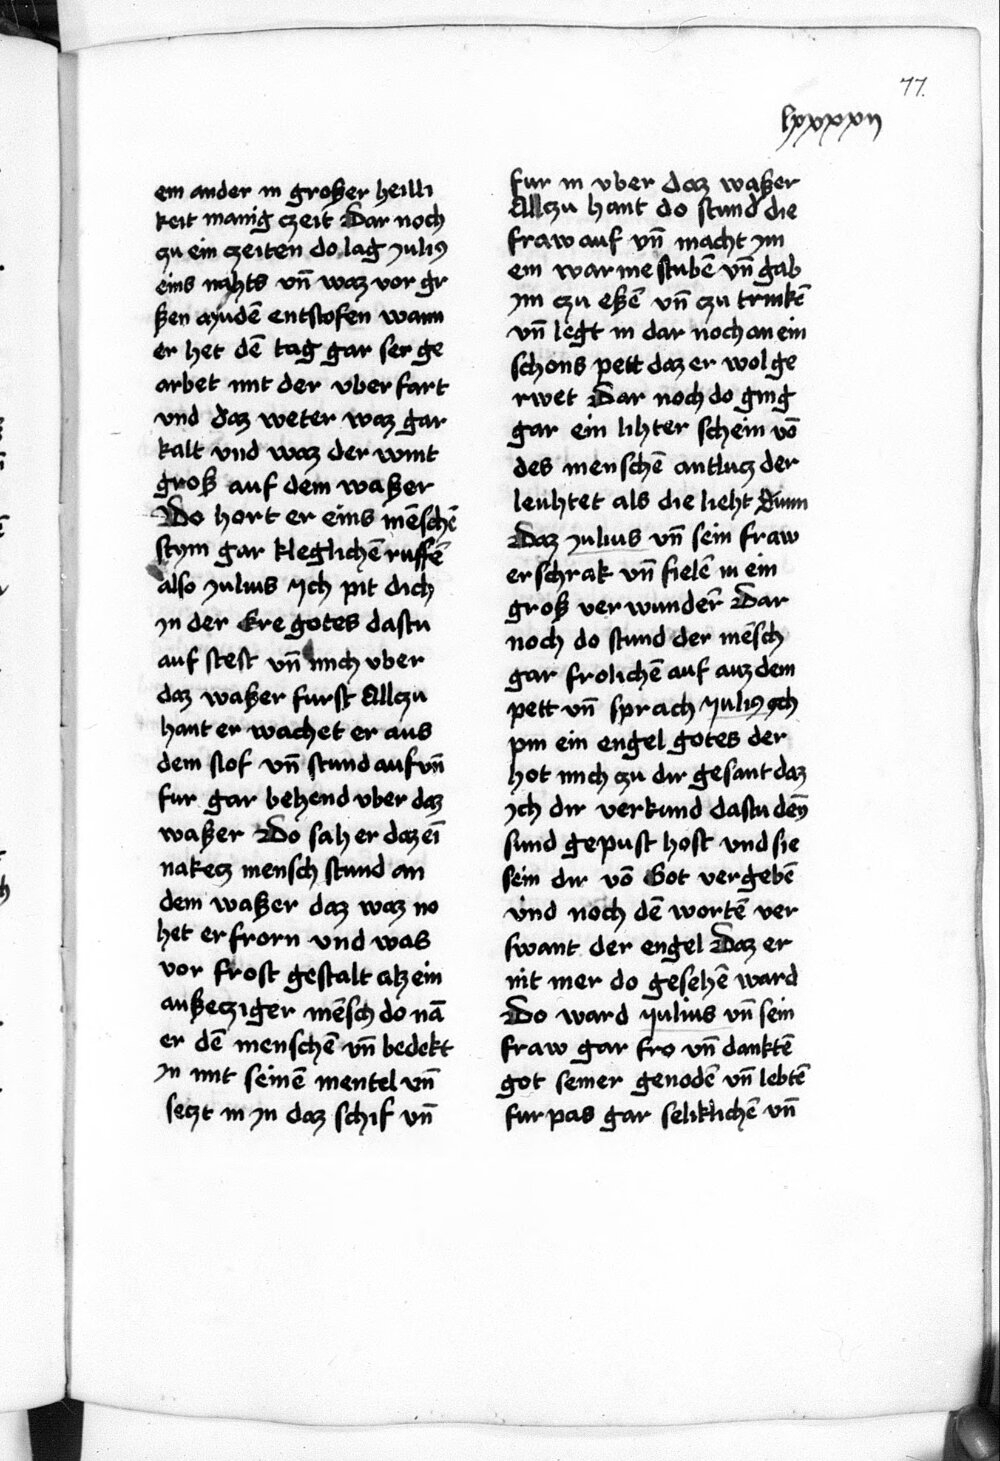 77.
lxxxxvii
ein ander in großer heilli
keit manig czeit Dar noch
czu ein czeiten do lag Julius
eins nahts vn̄ waz vor gr
ßen mudē entslofen wann
er het dē tag gar ser ge
arbet mit der vberfart
vnd daz weter waz gar
kalt vnd waz der wint
groß auf dem waßer
Do hort er eins mēschē
stym gar kleglichē ruffē
also Julius Jch pit dich
Jn der ere gotes dastu
auf stest vn̄ mich vber
daz waßer furst Allczu
hant er wachet er aus
dem slof vn̄ stund auf vn̄
fur gar behend vber daz
waßer Do sah er daz eī
nakecz mensch stund an
dem waßer daz waz no
het er frorn vnd was
vor frost gestalt alz ein
außecziger mēsch do nā
er dē menschē vn̄ bedekt
Jn mit seinē mentel vn̄
seczt in Jn daz schif vn̄
fur in vber daz waßer
Allczu hant do stund die
fraw auf vn̄ macht Jm
ein warme stubē vn̄ gab
Jm czu eßē vn̄ czu trinkē
vn̄ legt in dar noch an ein
schons pett daz er wol ge
rwet Dar noch do ging
gar ein lihter schein vō
des menschē antlucz der
leuhtet als die lieht Sunn
Daz Julius vn̄ sein fraw
erschrak vn̄ fielē in ein
groß verwunderr̄ Dar
noch do stund der mēsch
gar frolichē auf auz dem
pett vn̄ sprach Julius Jch
pin ein engel gotes der
hot mich czu dir gesant daz
Jch dir verkund dastu deīn
sund gepust host vnd sie
sein dir vō Got vergebē
vnd noch dē wortē ver
swant der engel Daz er
nit mer do gesehē ward
Do ward Julius vn̄ sein
fraw gar fro vn̄ danktē
got seiner genodē vn̄ lebtē
furpas gar seliklichē vn̄